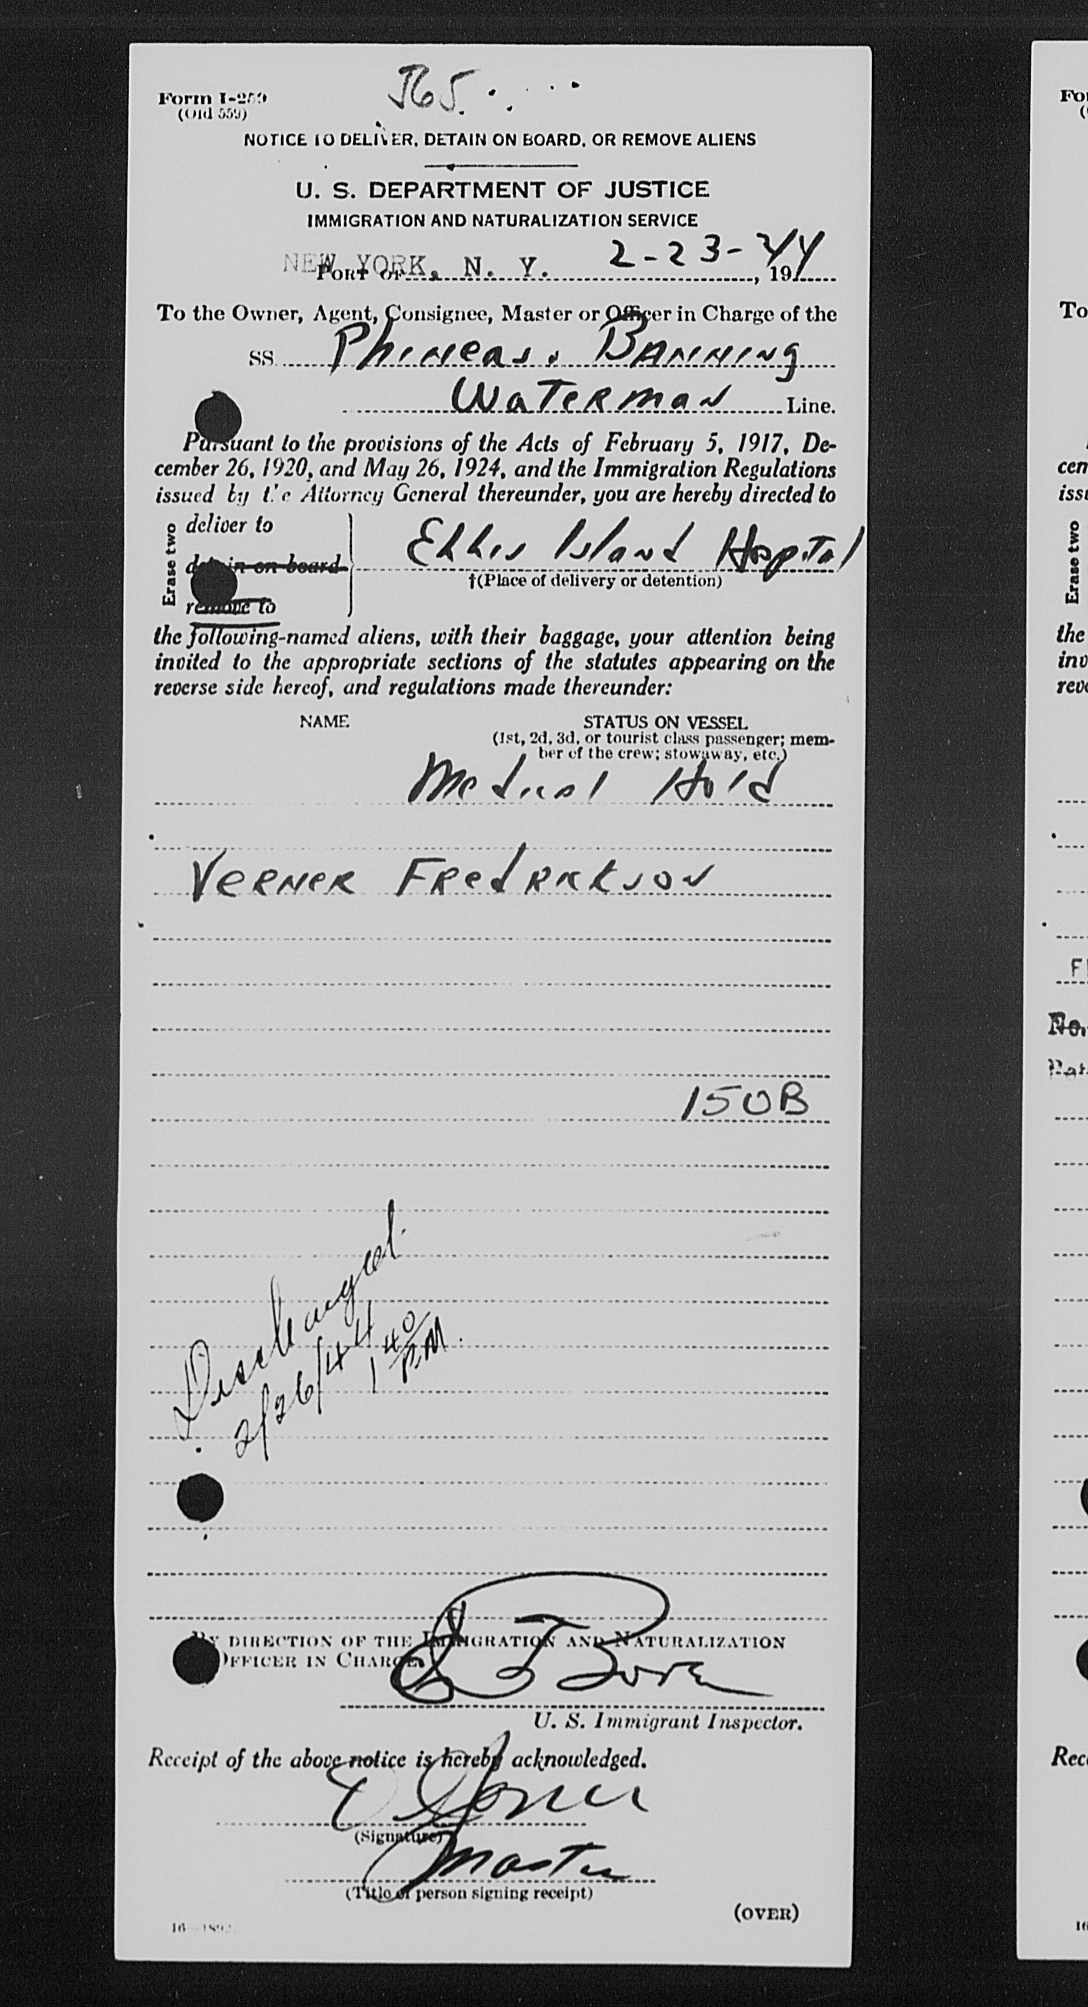 565
Form I-259
(Old 559)
NOTICE TO DELIVER, DETAIN ON BOARD, OR REMOVE ALIENS
U. S. DEPARTMENT OF JUSTICE
IMMIGRATION AND NATURALIZATION SERVICE
NEW YORK, N. Y. 2-23-44
PORT OF , 19
To the Owner, Agent, Consignee, Master or Officer in Charge of the
SS Phineas. Banning
Waterman Line.
Pursuant to the provisions of the Acts of February 5, 1917, De-
cember 26, 1920, and May 26, 1924, and the Immigration Regulations
issued by the Attorney General thereunder, you are hereby directed to
Erase two
deliver to
detain on board
remove to
Ellis Island Hospital
†(Place of delivery or detention)
the following-named aliens, with their baggage, your attention being
invited to the appropriate sections of the statutes appearing on the
reverse side hereof, and regulations made thereunder:
NAME STATUS ON VESSEL
(1st, 2d, 3d, or tourist class passenger; mem-
ber of the crew; stowaway, etc.)
Medical Hold
Verner Fredrickson
150B
Discharged
2/26/44 1 40 P.M.
BY DIRECTION OF THE IMMIGRATION AND NATURALIZATION
OFFICER IN CHARGE.
U. S. Immigrant Inspector.
Receipt of the above notice is hereby acknowledged.
(Signature)
Master
(Title of person signing receipt)
(OVER)
Fo
(
To
cem
issu
Erase two
the
inv
reve
No.
Rece
16